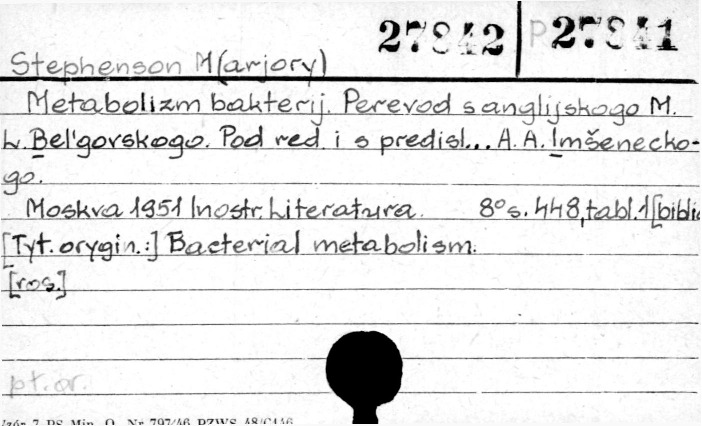 27842 P 27841
Stephenson M(arjory)
Metabolizm bakterij. Perevod s anglijskogo M.
L. Bel'govskogo. Pod red. i s predisl... A. A. Imšenecko-
go.
Moskva 1951 Inostr. Literatura. 8° s. 448, tabl. 1 [biblio
[Tyt. orygin.:] Bacterial metabolism.
[ros.]
pt. or.
7 PS Min. O. Nr 797/46 PZWS 48/C146